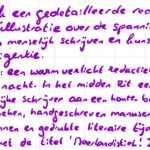 k een gedetailleerde rea
illustratie over de spannin
n menselijk schrijven en kuns
igentie.
: een warm verlicht redactie
nacht. In het midden zit een
ijke schrijver aan een houten b
oeken, handgeschreven manuser
nnen en gedrukte literaire tijds
met de titel 'Neerlandistiek'. Z